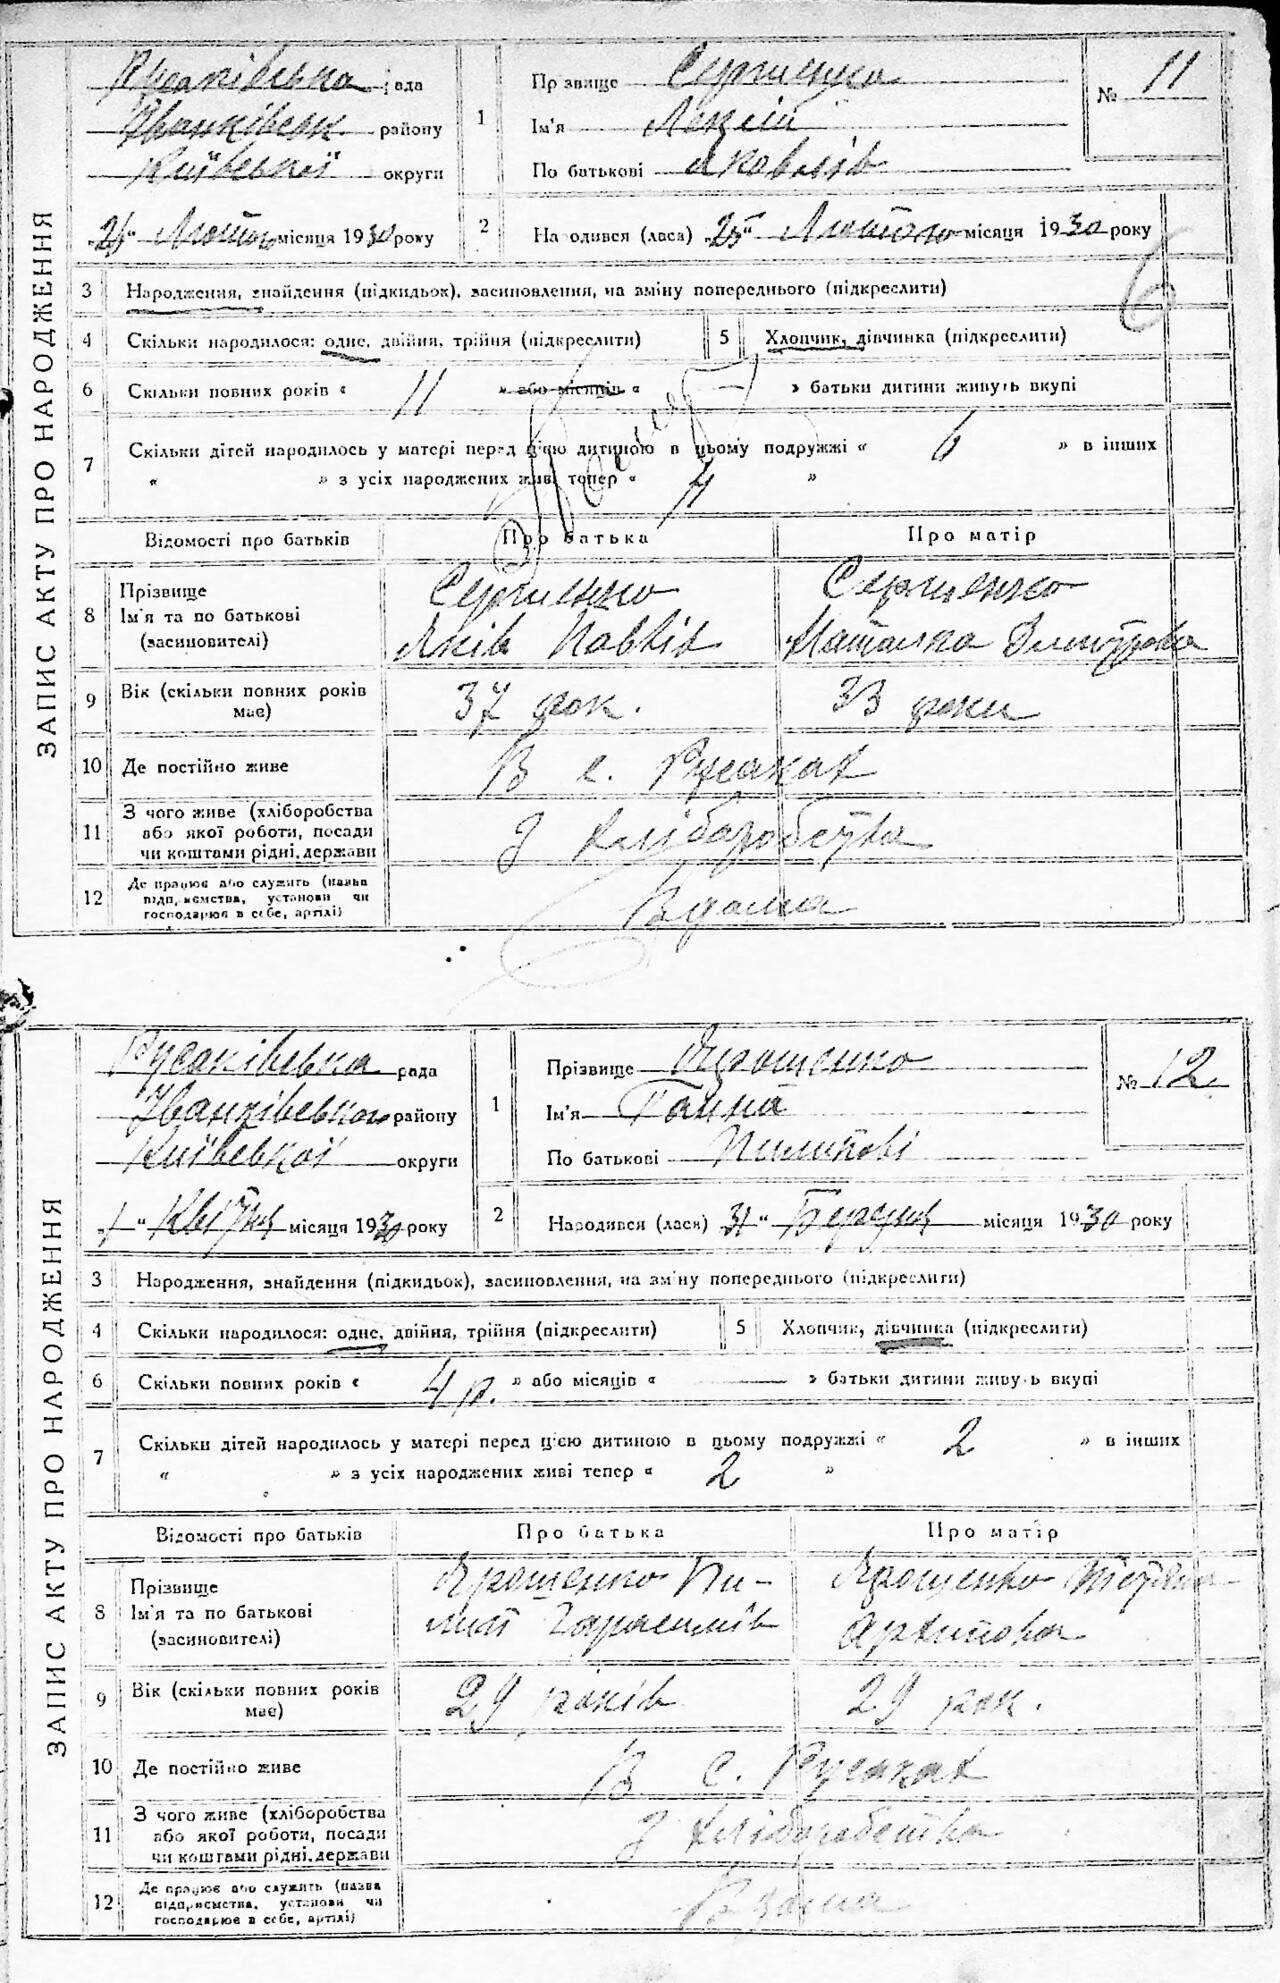 ЗАПИС АКТУ ПРО НАРОДЖЕННЯ
Русаківська рада
Іванківськ. району
Київської округи
"25" Лютого місяця 1930 року
1
Прізвище Сергиенко
Ім'я Лексій
По батькові Яковлів
№ 11
2
Народився (лася) "25" Лютого місяця 1930 року
3 Народження, знайдення (підкидьок), засиновлення, на зміну попереднього (підкреслити)
4 Скільки народилося: одне, двійня, трійня (підкреслити)
5 Хлопчик, дівчинка (підкреслити)
6 Скільки повних років « 11 » або місяців « » батьки дитини живуть вкупі
7 Скільки дітей народилось у матері перед цією дитиною в цьому подружжі « 6 » в інших
« » з усіх народжених живі тепер « 4 »
Відомості про батьків Про батька Про матір
8 Прізвище
Ім'я та по батькові
(засиновителі)
Сергиенко
Яків Павлів
Сергиенко
Наталка Дмитрова
9 Вік (скільки повних років має) 37 рок. 33 роки
10 Де постійно живе В с. Русаках
11 З чого живе (хліборобства
або якої роботи, посади
чи коштами рідні, держави
З хліборобства
12 Де працює або служить (назва
підприємства, установи чи
господарює в себе, артілі)
Вдома
ЗАПИС АКТУ ПРО НАРОДЖЕННЯ
Русаківська рада
Іванківського району
Київської округи
"1" Квітня місяця 1930 року
1
Прізвище Ярошенко
Ім'я Ганна
По батькові Пилипові
№ 12
2
Народився (лася) "31" Березня місяця 1930 року
3 Народження, знайдення (підкидьок), засиновлення, на зміну попереднього (підкреслити)
4 Скільки народилося: одне, двійня, трійня (підкреслити)
5 Хлопчик, дівчинка (підкреслити)
6 Скільки повних років « 4 р. » або місяців « — » батьки дитини живуть вкупі
7 Скільки дітей народилось у матері перед цією дитиною в цьому подружжі « 2 » в інших
« » з усіх народжених живі тепер « 2 »
Відомості про батьків Про батька Про матір
8 Прізвище
Ім'я та по батькові
(засиновителі)
Ярошенко Пи-
лип Гарасимів
Ярошенко Тетяна
Архипова
9 Вік (скільки повних років має) 29 років 29 рок.
10 Де постійно живе В с. Русаках
11 З чого живе (хліборобства
або якої роботи, посади
чи коштами рідні, держави
З хліборобства
12 Де працює або служить (назва
підприємства, установи чи
господарює в себе, артілі)
Вдома